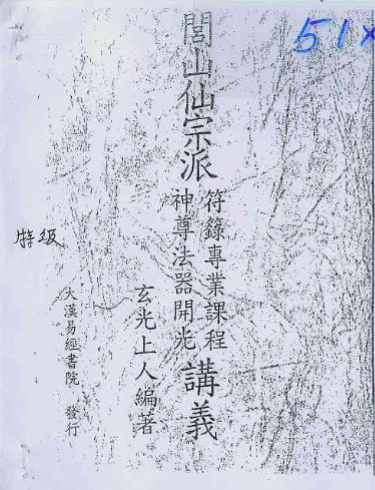 51x
閭山仙宗派
符錄專業課程
神尊法器開光
講義
玄光上人編著
大漢易經書院 發行
特級